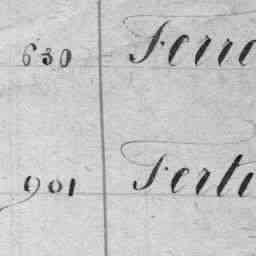 630 Ferre
901 Ferti